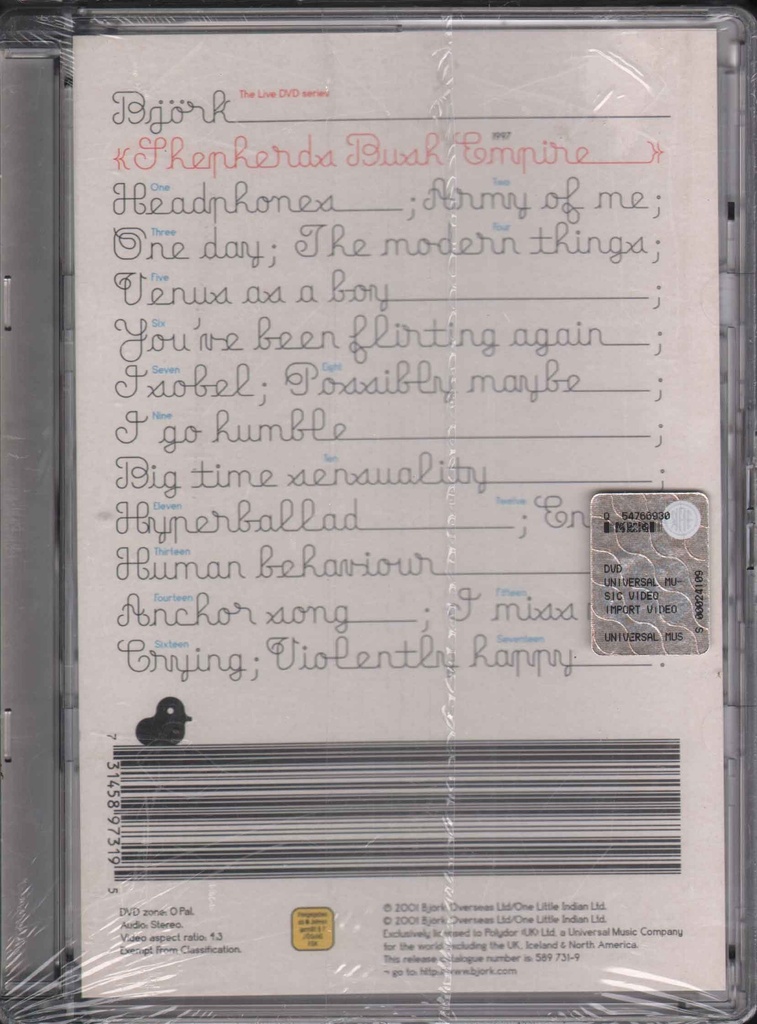 Björk The Live DVD series
«Shepherds Bush Empire 1997»
One Two
Headphones ; Army of me;
Three Four
One day; The modern things;
Five
Venus as a boy ;
Six
You've been flirting again ;
Seven Eight
Isobel; Possibly maybe ;
Nine
I go humble ;
Ten
Big time sensuality ;
Eleven Twelve
Hyperballad ; En
Thirteen
Human behaviour
Fourteen Fifteen
Anchor song ; I miss
Sixteen Seventeen
Crying; Violently happy .
0 54766930
DVD
UNIVERSAL MU-
SIC VIDEO
IMPORT VIDEO
UNIVERSAL MUS
S 00024109
7 314589 7319 5
DVD zone: 0 Pal.
Audio: Stereo.
Video aspect ratio: 4:3
Exempt From Classification.
℗ 2001 Björk Overseas Ltd/One Little Indian Ltd.
© 2001 Björk Overseas Ltd/One Little Indian Ltd.
Exclusively licensed to Polydor (UK) Ltd. a Universal Music Company
for the world excluding the UK, Iceland & North America.
This release catalogue number is: 589 731-9
¬ go to: http://www.bjork.com